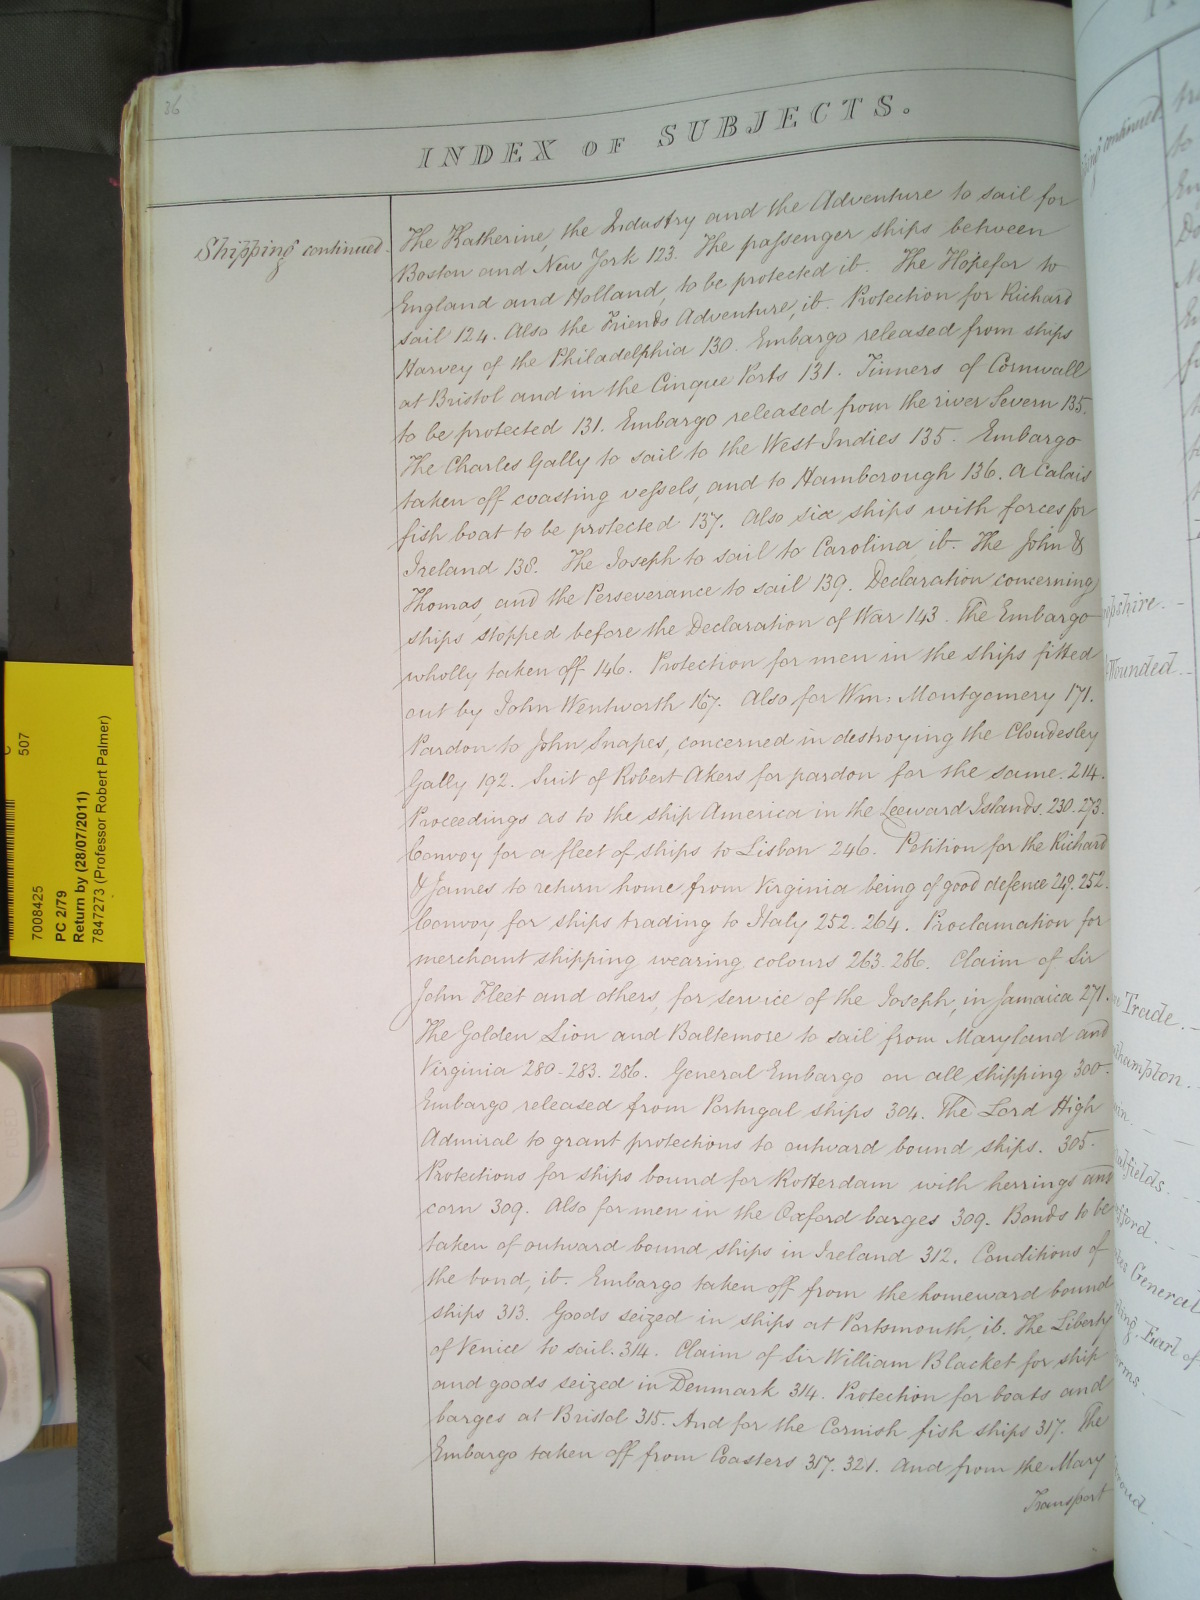 36
INDEX OF SUBJECTS.
Shipping continued.
The Katherine, the Industry and the Adventure to sail for
Boston and New York 123. The passenger ships between
England and Holland, to be protected ib. The Hopefor to
sail 124. Also the Friends Adventure, ib. Protection for Richard
Harvey of the Philadelphia 130. Embargo released from ships
at Bristol and in the Cinque Ports 131. Tinners of Cornwall
to be protected 131. Embargo released from the river Severn 135.
The Charles Gally to sail to the West Indies 135. Embargo
taken off coasting vessels, and to Hamborough 136. A Calais
fish boat to be protected 137. Also six ships with forces for
Ireland 138. The Joseph to sail to Carolina ib. The John &
Thomas, and the Perseverance to sail 139. Declaration concerning
ships stopped before the Declaration of War 143. The Embargo
wholly taken off 146. Protection for men in the ships fitted
out by John Wentworth 167. Also for Wm: Montgomery 171.
Pardon to John Snapes, concerned in destroying the Cloudesley
Gally 192. Suit of Robert Akers for pardon for the same. 214.
Proceedings as to the ship America in the Leeward Islands. 230. 273.
Convoy for a fleet of ships to Lisbon 246. Petition for the Richard
& James to return home from Virginia being of good defence 249. 252.
Convoy for ships trading to Italy 252. 264. Proclamation for
merchant shipping wearing colours 263. 286. Claim of Sir
John Fleet and others, for service of the Joseph, in Jamaica 271.
The Golden Lion and Baltemore to sail from Maryland and
Virginia 280. 283. 286. General Embargo on all shipping 300.
Embargo released from Portugal ships 304. The Lord High
Admiral to grant protections to outward bound ships. 305.
Protections for ships bound for Rotterdam with herrings and
corn 309. Also for men in the Oxford barges 309. Bonds to be
taken of outward bound ships in Ireland 312. Conditions of
the bond, ib. Embargo taken off from the homeward bound
ships 313. Goods seized in ships at Portsmouth, ib. The Liberty
of Venice to sail. 314. Claim of Sir William Blacket for ship
and goods seized in Denmark 314. Protection for boats and
barges at Bristol 315. And for the Cornish fish ships 317. The
Embargo taken off from Coasters 317. 321. And from the Mary
Transport
507
7008425
PC 2/79
Return by (28/07/2011)
7847273 (Professor Robert Palmer)
continued.
Trade.
General
Earl of